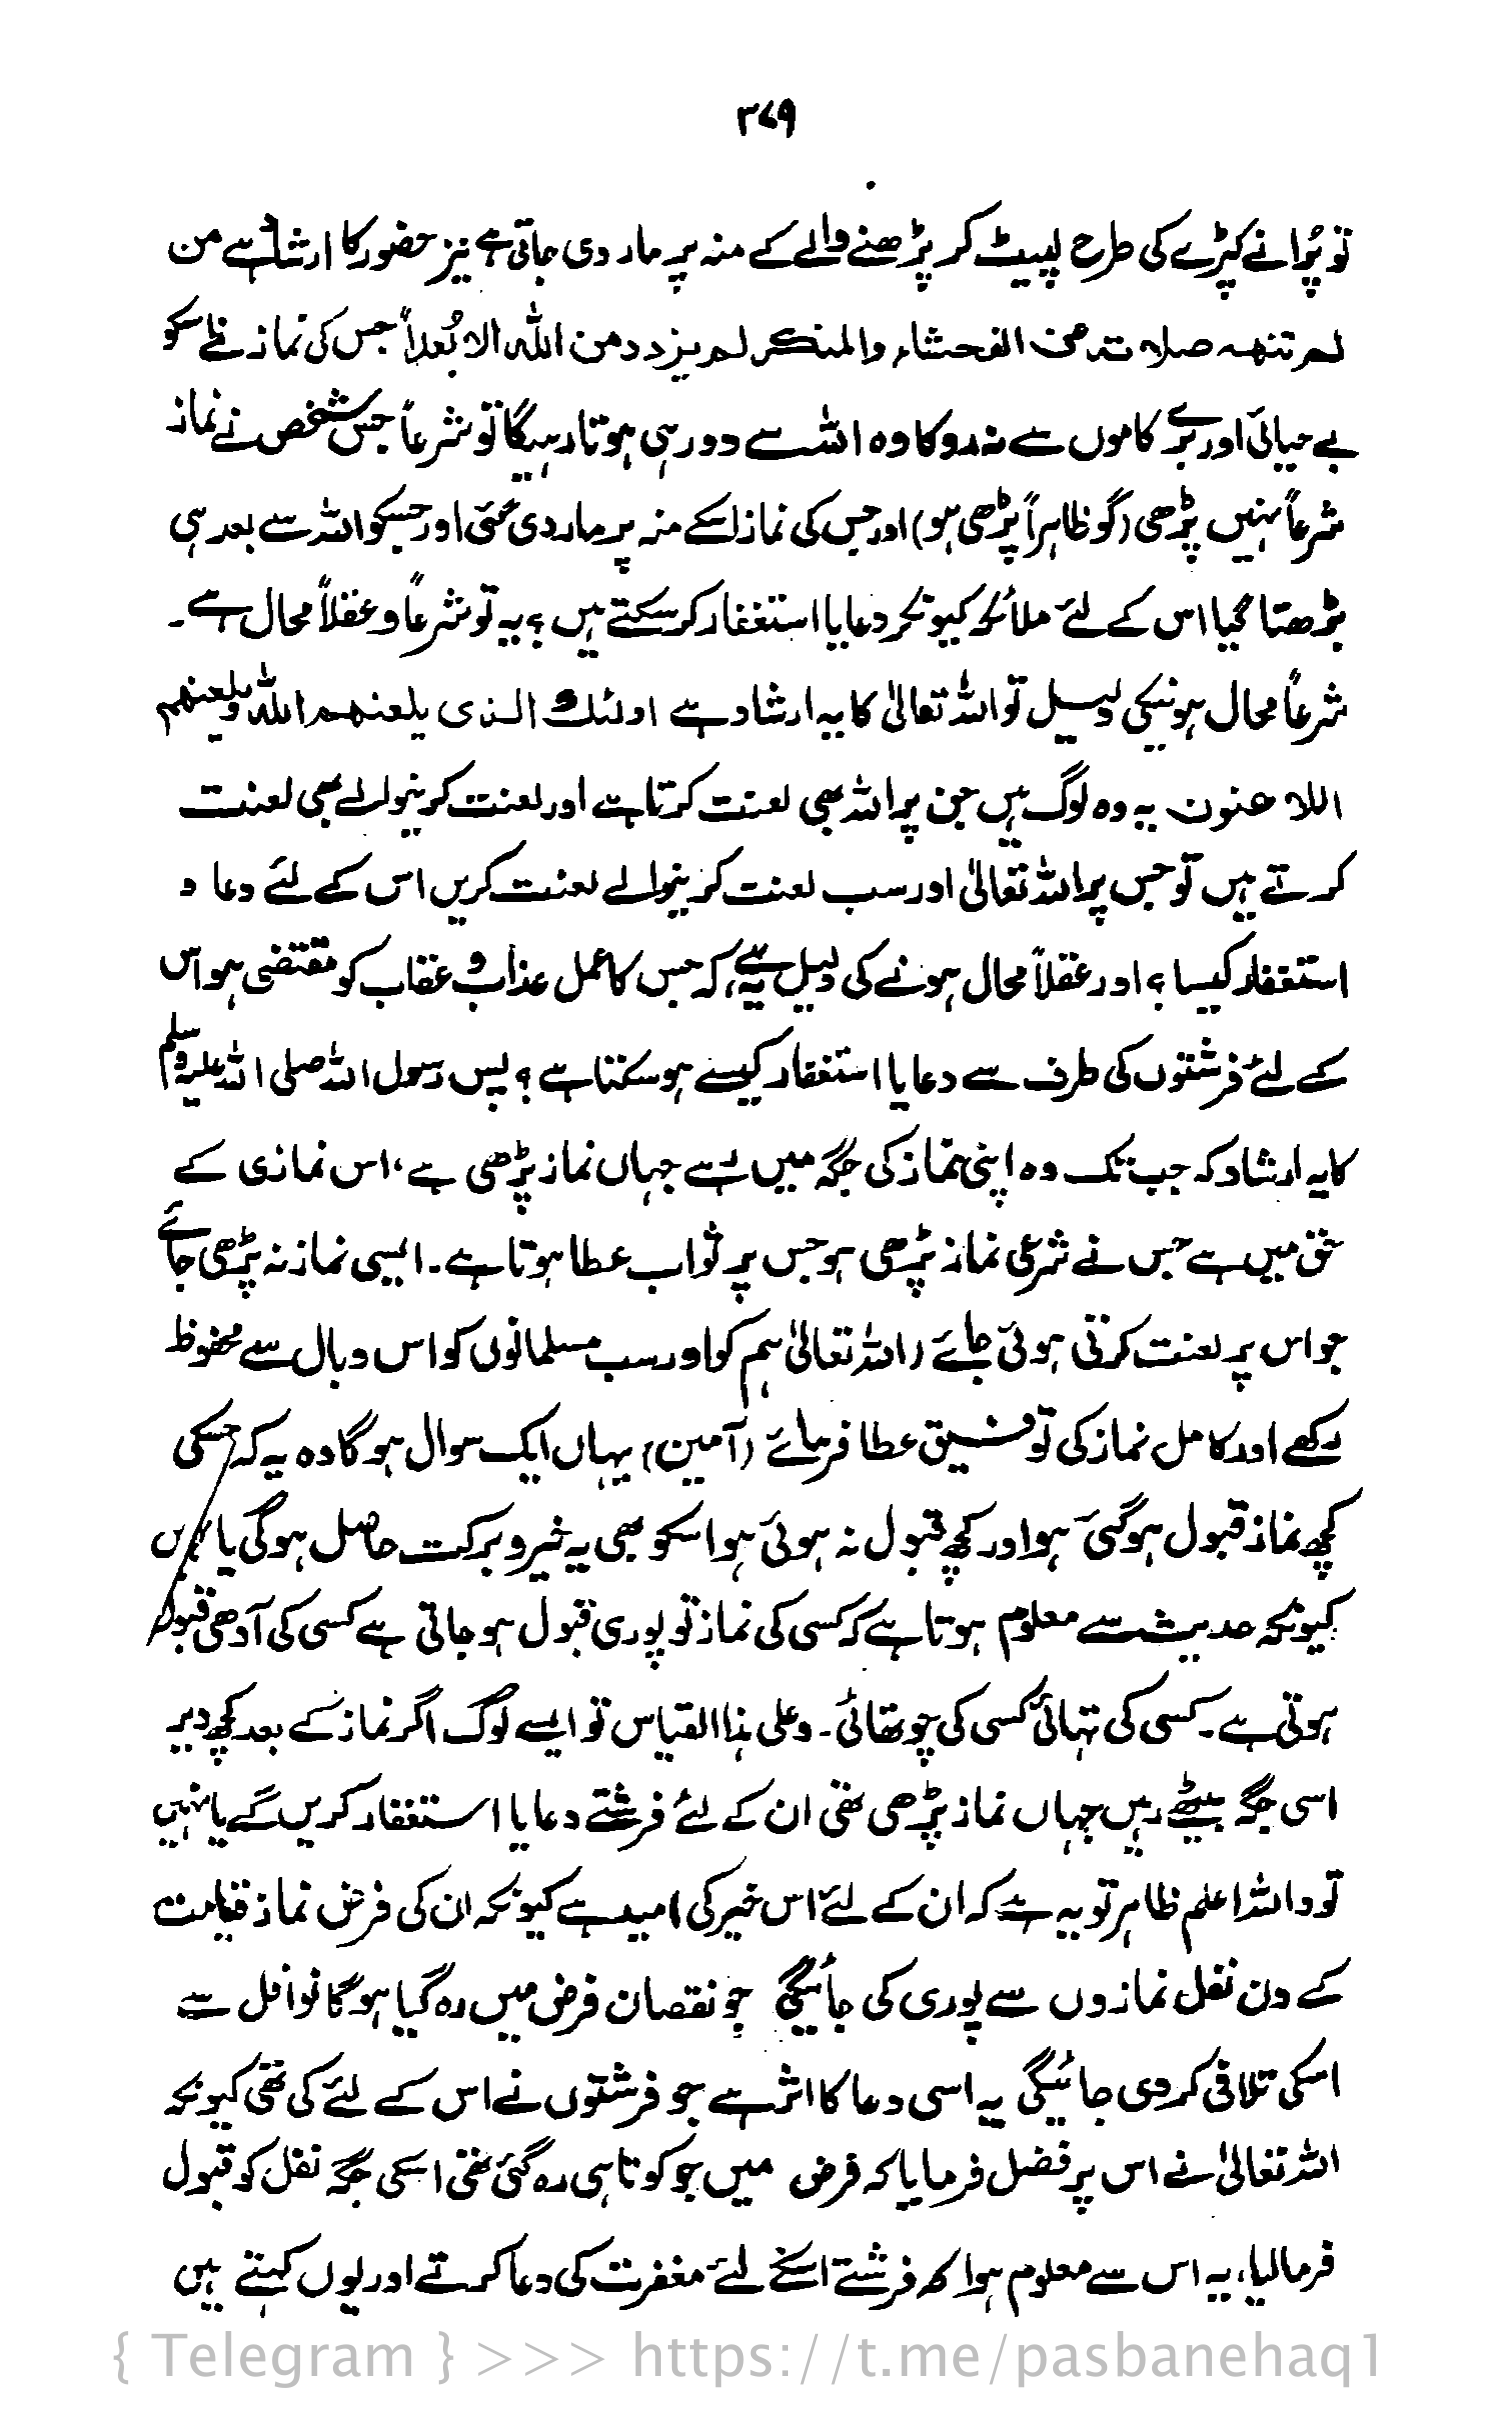 ۳۷۹
تو پُرانے کپڑے کی طرح لپیٹ کر پڑھنے والے کے منہ پر مار دی جاتی ہے نیز حضور کا ارشاد ہے من
لم تنھہ صلاتہ عن الفحشاء والمنکر لم یزدد من اللہ الا بُعداً جس کی نماز نے اسکو
بے حیائی اور برے کاموں سے نہ روکا وہ اللہ سے دور ہی ہوتا رہیگا تو شرعاً جس شخص نے نماز
شرعاً نہیں پڑھی (گو ظاہراً پڑھی ہو) اور جس کی نماز اسکے منہ پر مار دی گئی اور جسکو اللہ سے بعد ہی
بڑھتا گیا اس کے لئے ملائکہ کیونکر دعا یا استغفار کر سکتے ہیں ؟ یہ تو شرعاً و عقلاً محال ہے۔
شرعاً محال ہونیکی دلیل تو اللہ تعالیٰ کا یہ ارشاد ہے اولئک الذی یلعنھم اللہ ویلعنھم
اللاعنون یہ وہ لوگ ہیں جن پر اللہ بھی لعنت کرتا ہے اور لعنت کرنیوالے بھی لعنت
کرتے ہیں تو جس پر اللہ تعالیٰ اور سب لعنت کرنیوالے لعنت کریں اس کے لئے دعا و
استغفار کیسا ؟ اور عقلاً محال ہونے کی دلیل یہ ہے، کہ جس کا عمل عذاب و عقاب کو مقتضی ہو اس
کے لئے فرشتوں کی طرف سے دعا یا استغفار کیسے ہو سکتا ہے ؟ پس رسول اللہ صلی اللہ علیہ وسلم
کا یہ ارشاد کہ جب تک وہ اپنی نماز کی جگہ میں رہے جہاں نماز پڑھی ہے، اس نمازی کے
حق میں ہے جس نے شرعی نماز پڑھی ہو جس پر ثواب عطا ہوتا ہے۔ ایسی نماز نہ پڑھی جائے
جو اس پر لعنت کرتی ہوئی جائے (اللہ تعالیٰ ہم کو اور سب مسلمانوں کو اس وبال سے محفوظ
رکھے اور کامل نماز کی توفیق عطا فرمائے (آمین) یہاں ایک سوال ہوگا وہ یہ کہ جسکی
کچھ نماز قبول ہو گئی ہو اور کچھ قبول نہ ہوئی ہو اسکو بھی یہ خیر و برکت حاصل ہوگی یا نہیں
کیونکہ حدیث سے معلوم ہوتا ہے کہ کسی کی نماز تو پوری قبول ہو جاتی ہے کسی کی آدھی قبول
ہوتی ہے۔ کسی کی تہائی کسی کی چوتھائی۔ وعلی ہذا القیاس تو ایسے لوگ اگر نماز کے بعد کچھ دیر
اسی جگہ بیٹھے رہیں جہاں نماز پڑھی تھی ان کے لئے فرشتے دعا یا استغفار کریں گے یا نہیں
تو واللہ اعلم ظاہر تو یہ ہے کہ ان کے لئے اس خیر کی امید ہے کیونکہ ان کی فرض نماز قیامت
کے دن نفل نمازوں سے پوری کی جائیگی جو نقصان فرض میں رہ گیا ہوگا نوافل سے
اسکی تلافی کر دی جائیگی یہ اسی دعا کا اثر ہے جو فرشتوں نے اس کے لئے کی تھی کیونکہ
اللہ تعالیٰ نے اس پر فضل فرمایا کہ فرض میں جو کوتاہی رہ گئی تھی اسکی جگہ نفل کو قبول
فرمالیا، یہ اس سے معلوم ہوا کہ فرشتے اسکے لئے مغفرت کی دعا کرتے اور یوں کہتے ہیں
{ Telegram } >>> https://t.me/pasbanehaq1